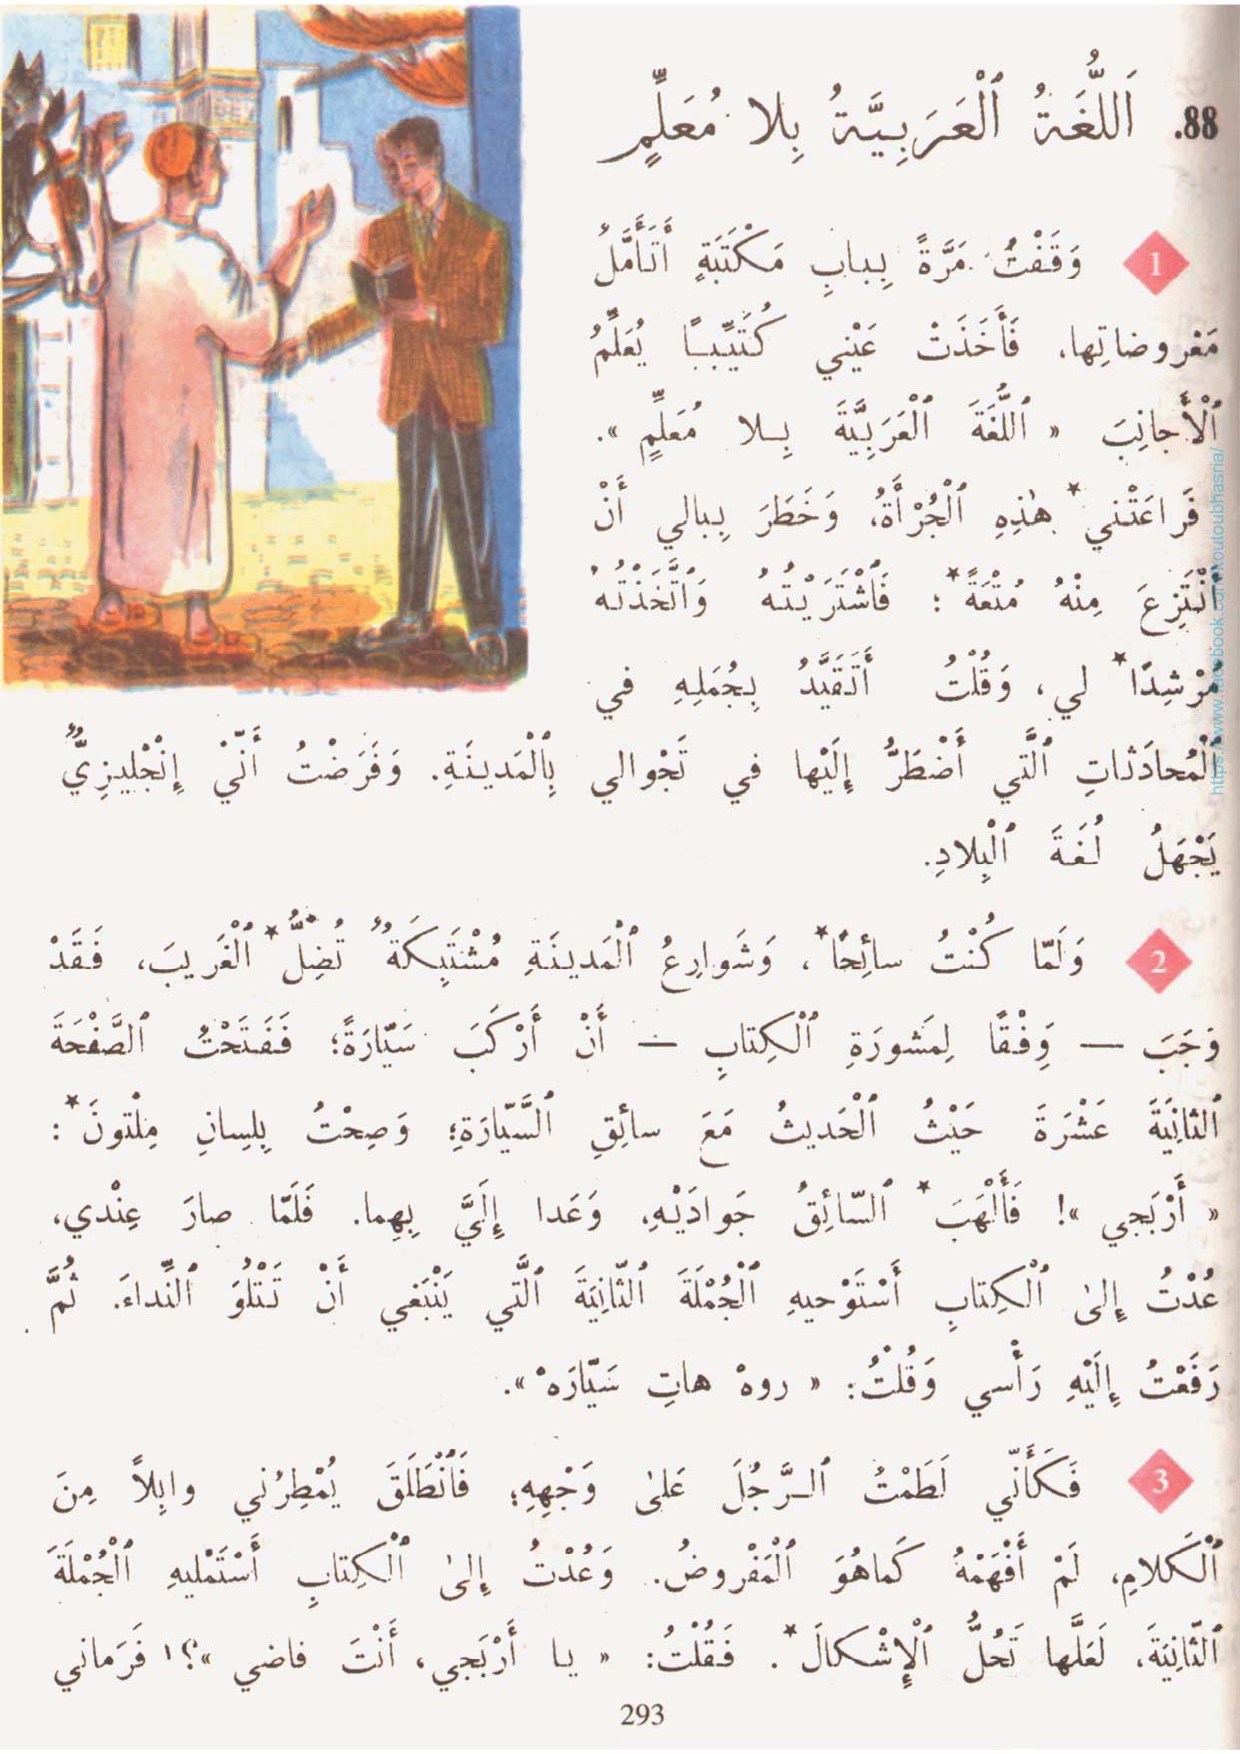 88. اَللُّغَةُ ٱلْعَرَبِيَّةُ بِلا مُعَلِّمٍ
1 وَقَفْتُ مَرَّةً بِبابِ مَكْتَبَةٍ أَتَأَمَّلُ
مَعْروضاتِها، فَأَخَذَتْ عَيْني كُتَيِّبًا يُعَلِّمُ
ٱلْأَجانِبَ « ٱللُّغَةَ ٱلْعَرَبِيَّةَ بِلا مُعَلِّمٍ ».
فَراعَتْني* هٰذِهِ ٱلْجُرْأَةُ، وَخَطَرَ بِبالي أَنْ
أَنْتَزِعَ مِنْهُ مُتْعَةً* : فَٱشْتَرَيْتُهُ وَٱتَّخَذْتُهُ
مُرْشِدًا* لي، وَقُلْتُ أَتَقَيَّدُ بِجُمَلِهِ في
ٱلْمُحادَثاتِ ٱلَّتي أَضْطَرُّ إِلَيْها في تَجْوالي بِٱلْمَدينَةِ. وَفَرَضْتُ أَنّي إِنْجْليزِيٌّ
يَجْهَلُ لُغَةَ ٱلْبِلادِ.
2 وَلَمّا كُنْتُ سائِحًا*، وَشَوارِعُ ٱلْمَدينَةِ مُشْتَبِكَةٌ تُضِلُّ* ٱلْغَريبَ، فَقَدْ
وَجَبَ — وِفْقًا لِمَشورَةِ ٱلْكِتابِ — أَنْ أَرْكَبَ سَيّارَةً؛ فَفَتَحْتُ ٱلصَّفْحَةَ
ٱلثّانِيَةَ عَشْرَةَ حَيْثُ ٱلْحَديثُ مَعَ سائِقِ ٱلسَّيّارَةِ؛ وَصِحْتُ بِلِسانِ مِلْتونَ* :
« أَرْبَجي »! فَأَلْهَبَ* ٱلسّائِقُ جَوادَيْهِ، وَعَدا إِلَيَّ بِهِما. فَلَمّا صارَ عِنْدي،
عُدْتُ إِلىٰ ٱلْكِتابِ أَسْتَوْحيهِ ٱلْجُمْلَةَ ٱلثّانِيَةَ ٱلَّتي يَنْبَغي أَنْ تَتْلُوَ ٱلنِّداءَ. ثُمَّ
رَفَعْتُ إِلَيْهِ رَأْسي وَقُلْتُ: « روهْ هاتِ سَيّارَهْ ».
3 فَكَأَنّي لَطَمْتُ ٱلرَّجُلَ عَلىٰ وَجْهِهِ؛ فَٱنْطَلَقَ يُمْطِرُني وابِلاً مِنَ
ٱلْكَلامِ، لَمْ أَفْهَمْهُ كَماهُوَ ٱلْمَفْروضُ. وَعُدْتُ إِلىٰ ٱلْكِتابِ أَسْتَمْليهِ ٱلْجُمْلَةَ
ٱلثّانِيَةَ، لَعَلَّها تَحُلُّ ٱلْإِشْكالَ*. فَقُلْتُ: « يا أَرْبَجي، أَنْتَ فاضي »؟! فَرَماني
293
https://www.facebook.com/koutoubhasria/